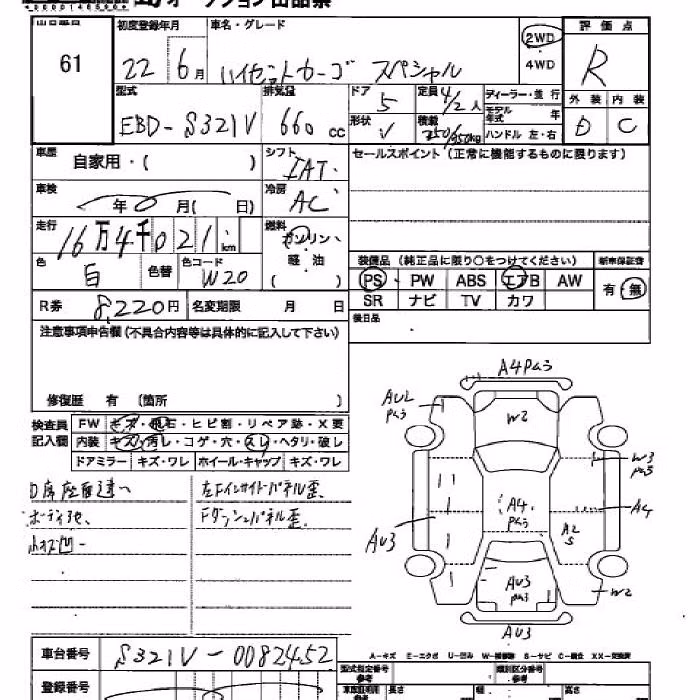 オークション出品票
61
初度登録年月 車名・グレード
22 6月 ハイゼットカーゴ スペシャル
2WD
4WD
評価点
R
外装 内装
D C
型式 排気量
EBD-S321V 660 cc
ドア 5
形状 V
定員 4/2人
積載 250/350kg
ディーラー・並行
モデル年式 年
ハンドル 左・右
車歴 自家用・( )
シフト IAT
セールスポイント (正常に機能するものに限ります)
車検 年 0 月( 日)
冷房 AC
走行 16万4千021 km
燃料 ガソリン、
軽・油
( )
色 白 色替 色コード W20
装備品 (純正品に限り○をつけてください) 新車保証書
PS PW ABS エアB AW
SR ナビ TV カワ
有・無
R券 8,220円 名変期限 月 日
後日品
注意事項申告欄 (不具合内容等は具体的に記入して下さい)
修復歴 有 (箇所 )
検査員
記入欄
FW キズ・飛石・ヒビ割・リペア跡・X要
内装 キズ・汚レ・コゲ・穴・スレ・ヘタリ・破レ
ドアミラー キズ・ワレ ホイール・キャップ キズ・ワレ
D席座面
ボディ
小キズ凹
左Fインサイドパネル歪
Fダッシュパネル歪
A4Pみラ
AUL
W2
W3
A4
A4
A2
S
AU3
AU3
W2
AU3
A-キズ E-エクボ U-凹み S-サビ C-腐食 XX-交換済
車台番号 S321V-0082452
登録番号
型式指定番号
参考
類別区分番号
参考
長さ 幅 高さ